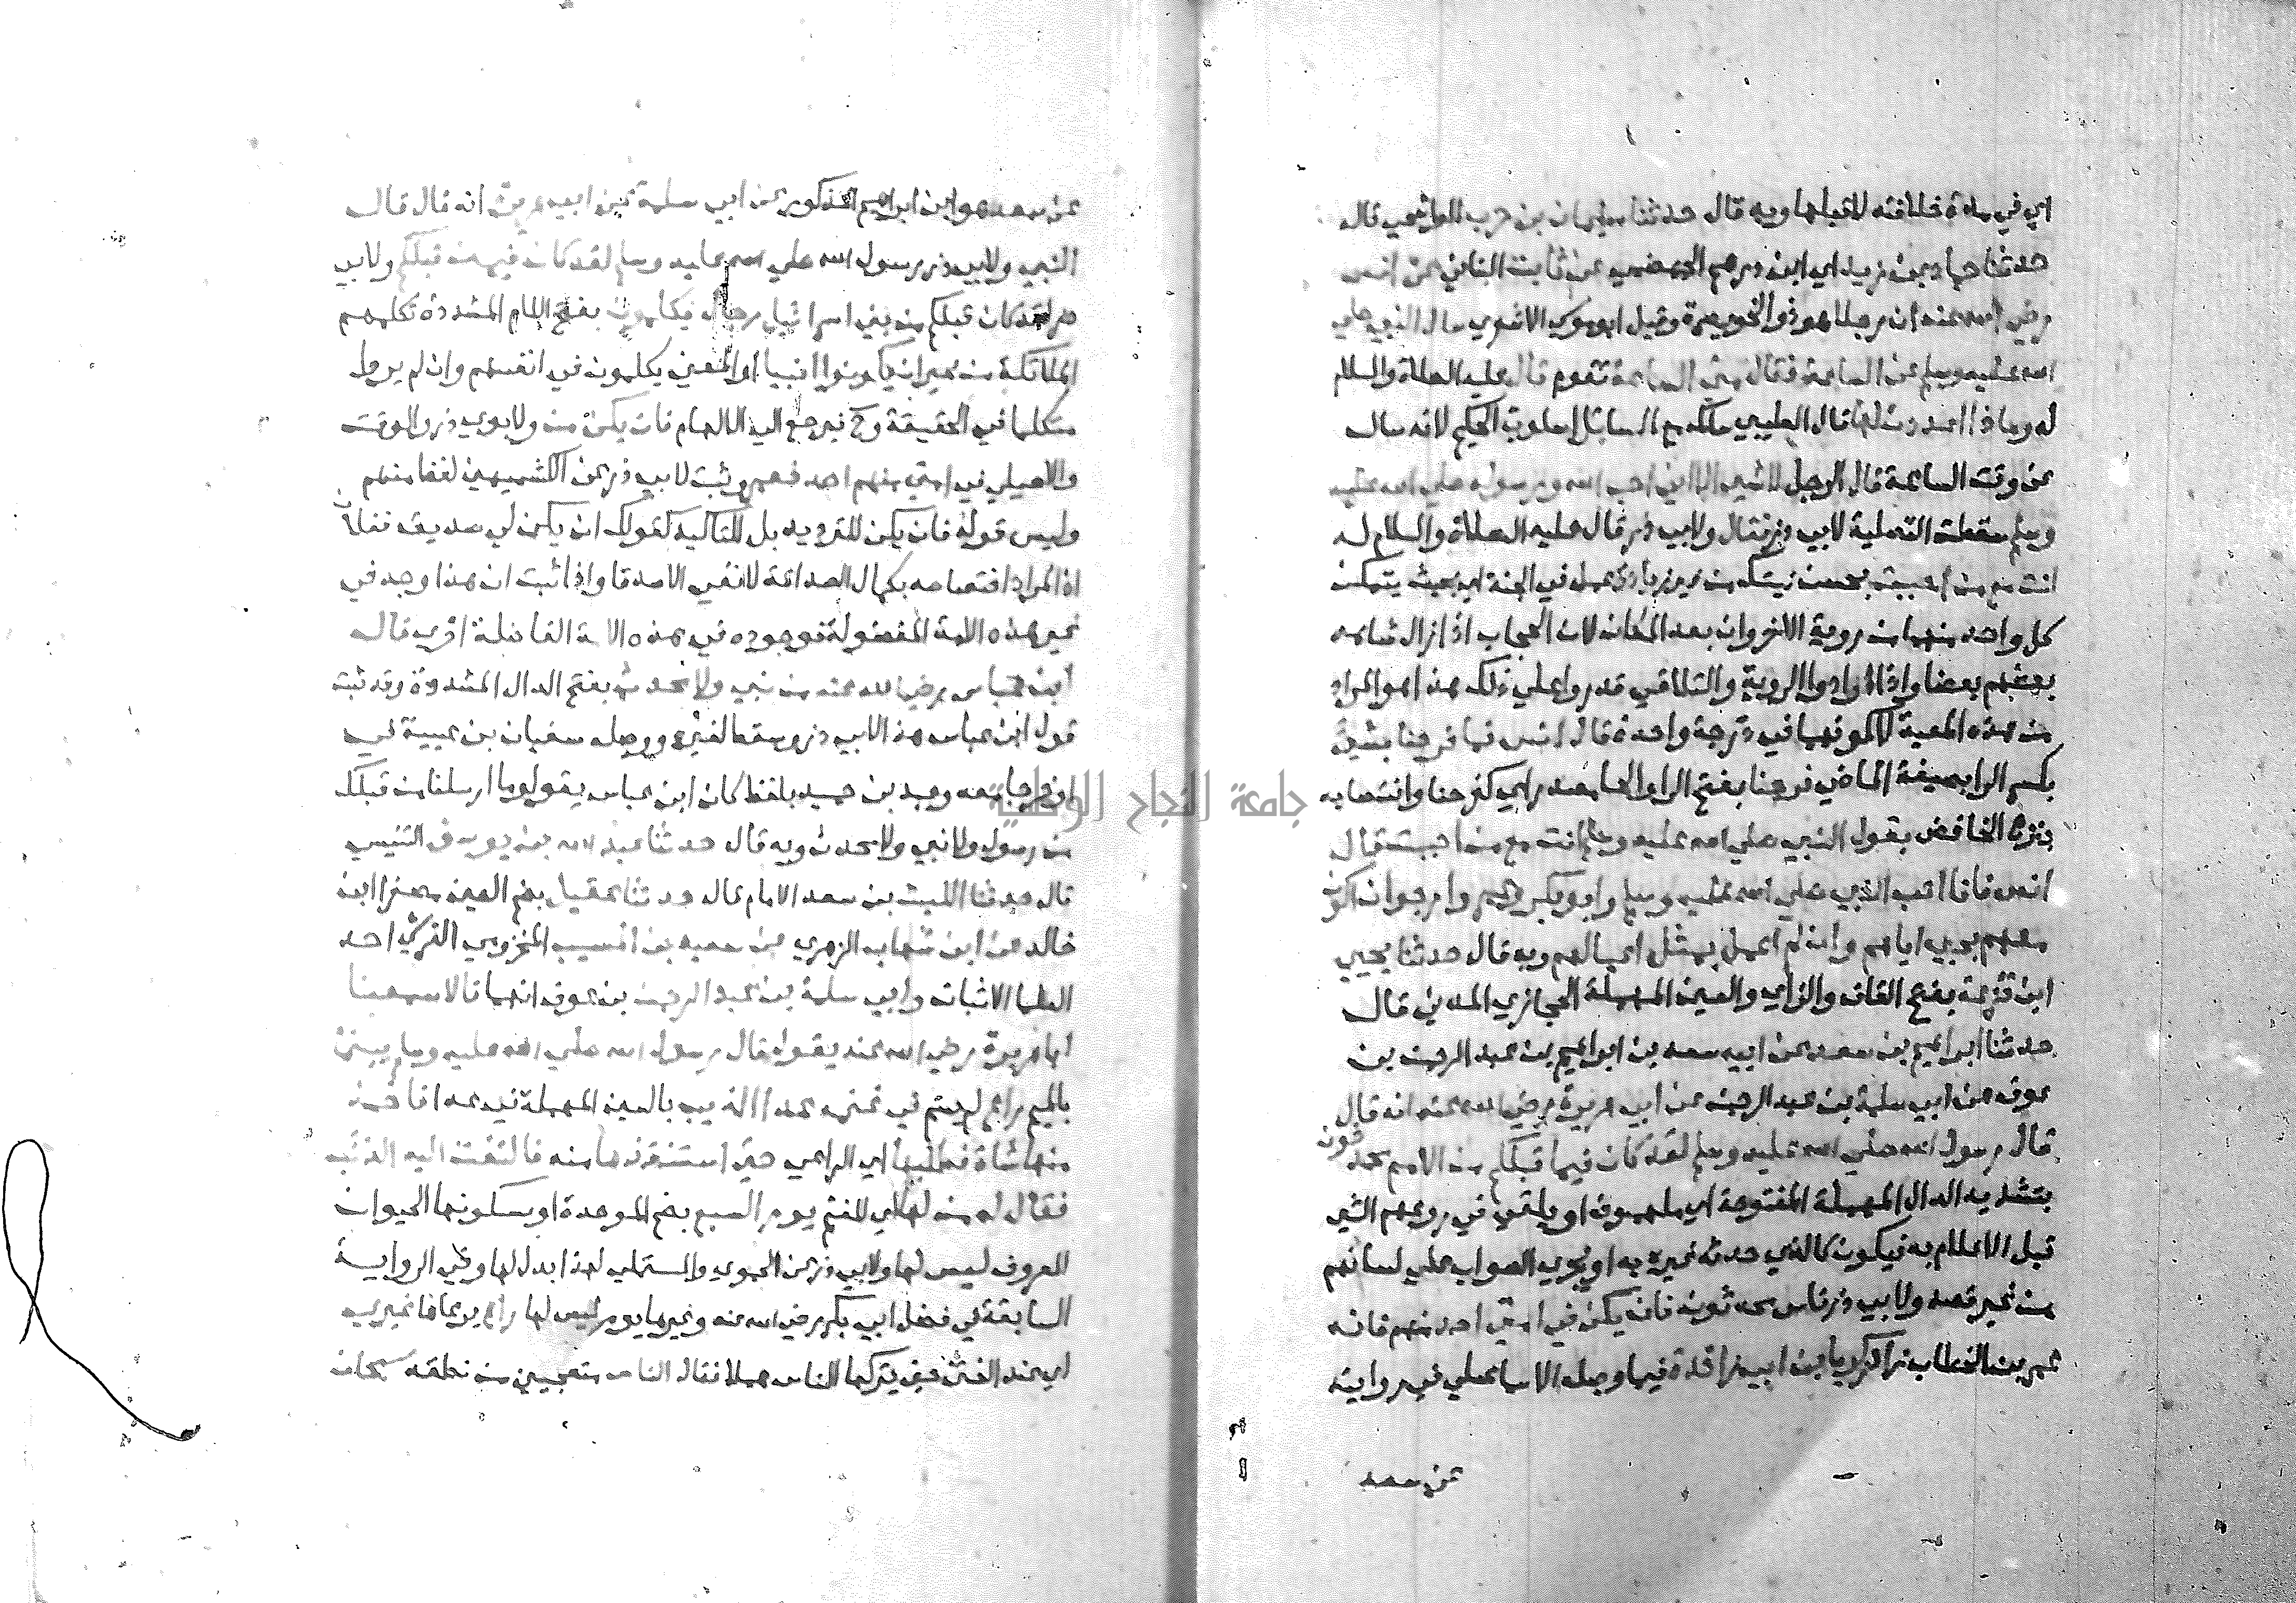 اي في مدة خلافته لا قبلها وبه قال حدثنا سليمان بن حرب الواشحي قال
حدثنا حماد بن زيد اي ابن درهم الجهضمي عن ثابت البناني عن انس
رضي الله عنه ان رجلا هو ذو الخويصرة وقيل ابو موسي الاشعري سال النبي صلي
الله عليه وسلم عن الساعة فقال متي الساعة تقوم قال عليه الصلاة والسلام
له وماذا اعددت لها قال الطيبي سلك مع السائل اسلوب الحكيم لانه سال
عن وقت الساعة قال الرجل لا شي الا اني احب الله ورسوله صلي الله عليه
وسلم سقطت التصلية لابي ذر فقال ولابي ذر قال عليه الصلاة والسلام له
انت مع من احببت بحسن نيتك من غير زيادة عمل في الجنة اي بحيث يتمكن
كل واحد منهما من روية الاخر وان بعد المكان لان الحجاب اذا زال شاهد
بعضهم بعضا واذا ارادوا الروية والتلاقي قدروا علي ذلك هذا هو المراد
من هذه المعية لا كونهما في درجة واحدة قال انس فما فرحنا بشي
بكسر الرا بصيغة الماضي فرحنا بفتح الرا والحا مصدر اي كفرحنا وانتصابه
بنزع الخافض بقول النبي صلي الله عليه وسلم انت مع من احببت قال
انس فانا احب النبي صلي الله عليه وسلم وابو بكر وعمر وارجوا ان اكون
معهم بحبي اياهم وان لم اعمل بمثل اعمالهم وبه قال حدثنا يحيي
ابن قزعة بفتح القاف والزاي والعين المهملة الحجازي المدني قال
حدثنا ابراهيم بن سعد عن ابيه سعد بن ابراهيم بن عبد الرحمن بن
عوف عن ابي سلمة بن عبد الرحمن عن ابي هريرة رضي الله عنه انه قال
قال رسول الله صلي الله عليه وسلم لقد كان فيما قبلكم من الامم محدثون
بتشديد الدال المهملة المفتوحة اي ملهمون او يلقي في روعهم الشي
قبل الاعلام به فيكون كالذي حدثه غيره به او يجري الصواب علي لسانهم
من غير قصد ولابي ذر ناس محدثون فان يكن في امتي احد منهم فانه
عمر بن الخطاب زاد زكريا بن ابي زائدة فيما وصله الاسماعيلي في روايته
عن سعد
عن سعد هو ابن ابراهيم المذكور عن ابي سلمة عن ابي هريرة انه قال قال
النبي ولابي ذر رسول الله صلي الله عليه وسلم لقد كان فيمن قبلكم ولابي
ذر لقد كان قبلكم من بني اسرائيل رجال يكلمون بفتح اللام المشددة تكلمهم
الملائكة من غير ان يكونوا انبيا او المعني يكلمون في انفسهم وان لم يروا
متكلما في الحقيقة وح فيرجع الي الالهام فان يكن من ولابوي ذر والوقت
والاصيلي في امتي منهم احد فعمر وثبت لابي ذر عن الكشميهني لفظ منهم
وليس قوله فان يكن للترديد بل للتاكيد كقولك ان يكن لي صديق ففلان
اذ المراد اختصاصه بكمال الصداقة لا نفي الاصدقا واذا ثبت ان هذا وجد في
غير هذه الامة المفضولة فوجوده في هذه الامة الفاضلة احري قال
ابن عباس رضي الله عنه من نبي ولا محدث بفتح الدال المشددة وقد ثبت
قول ابن عباس هذا لابي ذر وسقط لغيره ووصله سفيان بن عيينة في
اواخر جامعه وعبد بن حميد بلفظ كان ابن عباس يقول وما ارسلنا من قبلك
من رسول ولا نبي ولا محدث وبه قال حدثنا عبد الله بن يوسف التنيسي
قال حدثنا الليث بن سعد الامام قال حدثنا عقيل بضم العين مصغرا ابن
خالد عن ابن شهاب الزهري عن سعيد بن المسيب المخزومي القرشي احد
العلما الاثبات وابي سلمة بن عبد الرحمن بن عوف انهما قالا سمعنا
ابا هريرة رضي الله عنه يقول قال رسول الله صلي الله عليه وسلم بينما
بالميم راع لم يسم في غنمه عدا الذيب بالعين المهملة فيدعه اخذ
منها شاة فطلبها اي الراعي حتي استنقذها منه فالتفت اليه الذئب
فقال له من لها اي للغنم يوم السبع بضم الموحدة او بسكونها الحيوان
المعروف ليس لها ولابي ذر عن الحموي والمستملي لهذا بدل لها وفي الرواية
السابقة في فضل ابي بكر رضي الله عنه وغيرها يوم ليس لها راع يرعاها غيري
اي عند الفتن حين يتركها الناس هملا فقال الناس متعجبين من نطقه سبحان
جامعة النجاح الوطنية